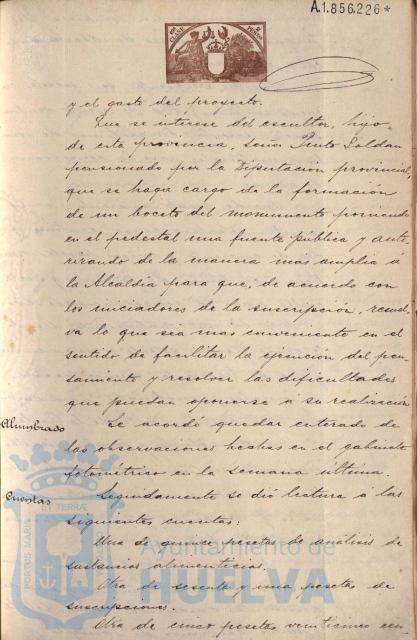 A.1.856.226*
y el gasto del proyecto.
Que se interese del escultor, hijo
de esta provincia, Señor Pinto Soldan
pensionado por la Diputación provincial,
que se haga cargo de la formación
de un boceto del monumento poniendo
en el pedestal una fuente pública y auto-
rizando de la manera mas amplia á
la Alcaldía para que, de acuerdo con
los iniciadores de la suscripción, resuel-
va lo que sea más conveniente en el
sentido de facilitar la ejecución del pen-
samiento y resolver las dificultades
que puedan oponerse á su realización
Alumbrado
Se acordó quedar enterado de
las observaciones hechas en el gabinete
fotométrico en la semana última.
Cuentas
Seguidamente se dió lectura á las
siguientes cuentas:
Una de quince pesetas de análisis de
sustancias alimenticias.
Otra de sesenta y una pesetas de
suscripciones.
Otra de cinco pesetas veinticinco cen
PORTUS MARIS ET TERRAE
Ayuntamiento de
HUELVA